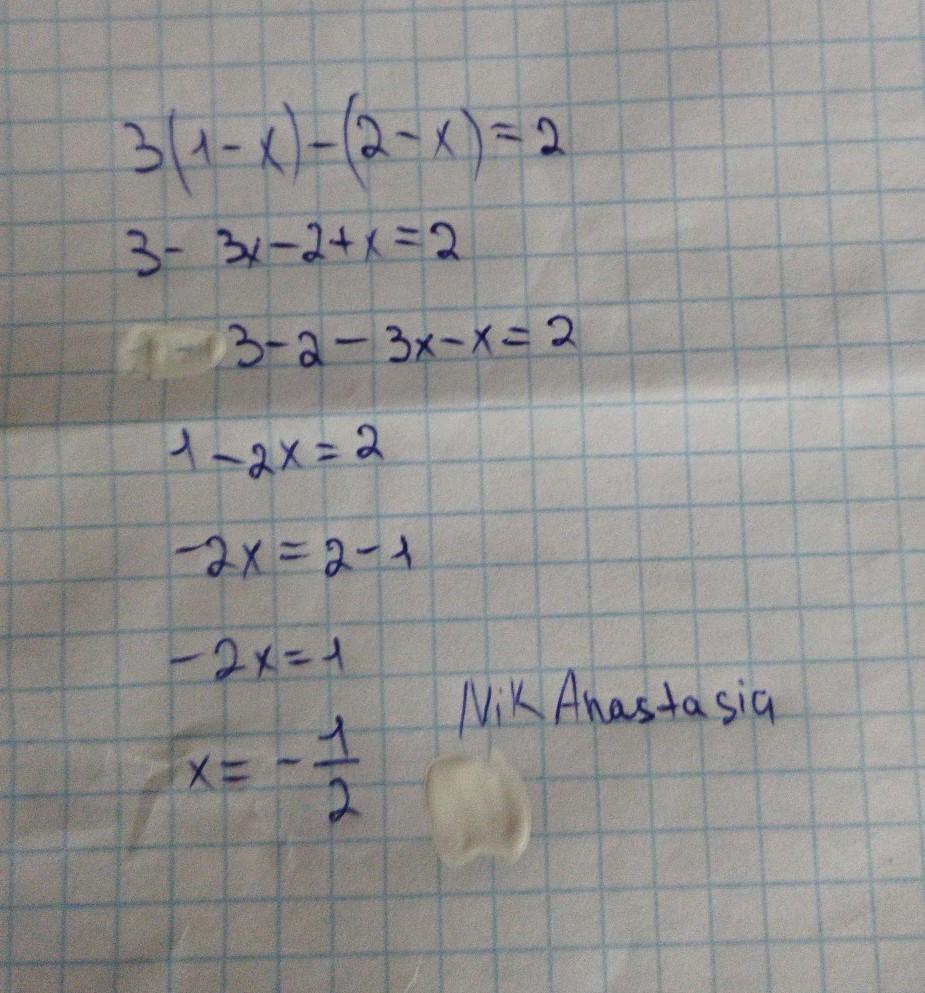 3(1-x)-(2-x)=2
3- 3x-2+x=2
3-2-3x-x=2
1-2x=2
-2x=2-1
-2x=1
Nik Anastasia
x=-1/2